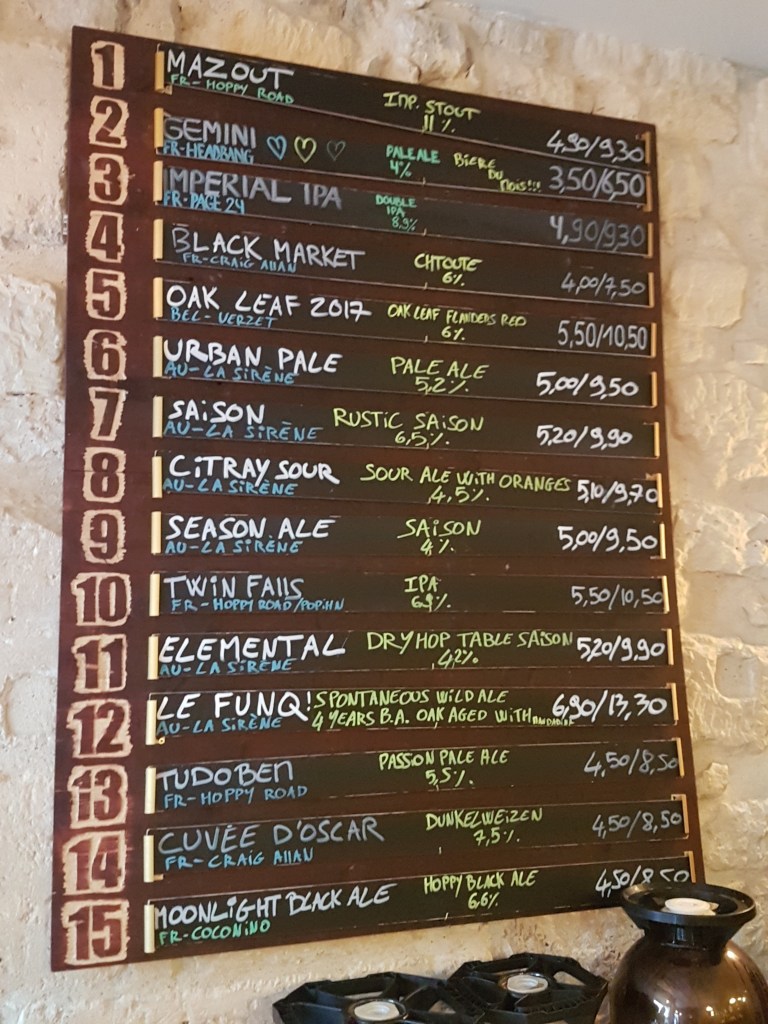 1 MAZOUT
FR- HOPPY ROAD
IMP. STOUT
11%
4,90/9,30
2 GEMINI
FR-HEADBANG
PALE ALE
4%
BIÈRE
DU
MOIS!!!
3,50/6,50
3 IMPERIAL IPA
FR-PAGE 24
DOUBLE
IPA
8,9%
4,90/9,30
4 BLACK MARKET
FR-CRAIG ALLAN
CHTOUTE
6%
4,00/7,50
5 OAK LEAF 2017
BEL- VERZET
OAK LEAF FLANDERS RED
6%
5,50/10,50
6 URBAN PALE
AU-LA SIRÈNE
PALE ALE
5,2%
5,00/9,50
7 SAISON
AU-LA SIRÈNE
RUSTIC SAISON
6,5%
5,20/9,90
8 CITRAY SOUR
AU-LA SIRÈNE
SOUR ALE WITH ORANGES
4,5%
5,10/9,70
9 SEASON ALE
AU-LA SIRÈNE
SAISON
4%
5,00/9,50
10 TWIN FALLS
FR-HOPPY ROAD/POPIHN
IPA
6,9%
5,50/10,50
11 ELEMENTAL
AU-LA SIRÈNE
DRY HOP TABLE SAISON
4,2%
5,20/9,90
12 LE FUNQ!
AU-LA SIRÈNE
SPONTANEOUS WILD ALE
4 YEARS B.A. OAK AGED WITH
6,90/13,30
13 TUDO BEN
FR-HOPPY ROAD
PASSION PALE ALE
5,5%
4,50/8,50
14 CUVÉE D'OSCAR
FR-CRAIG ALLAN
DUNKELWEIZEN
7,5%
4,50/8,50
15 MOONLIGHT BLACK ALE
FR-COCONINO
HOPPY BLACK ALE
6,6%
4,50/8,50